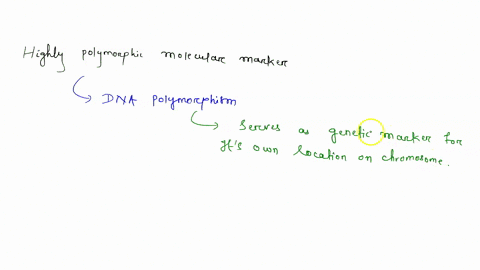 Highly polymorphic molecular marker
DNA polymorphism
Serves as genetic marker for
It's own location on chromosome.